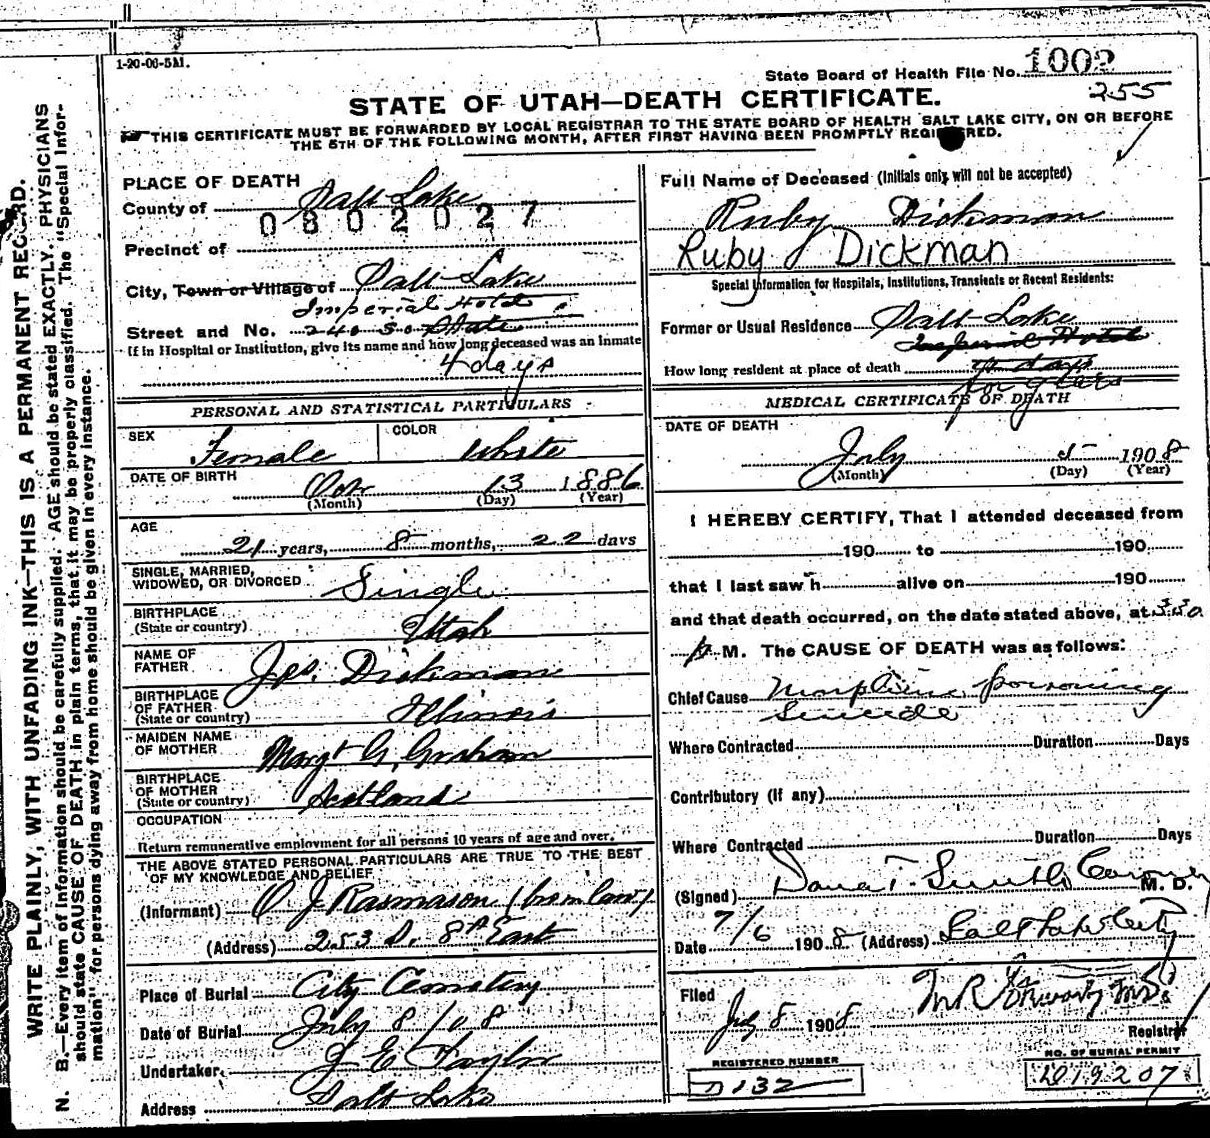 1-20-06-5M.
State Board of Health File No. 1002
255
STATE OF UTAH—DEATH CERTIFICATE.
THIS CERTIFICATE MUST BE FORWARDED BY LOCAL REGISTRAR TO THE STATE BOARD OF HEALTH SALT LAKE CITY, ON OR BEFORE
THE 5TH OF THE FOLLOWING MONTH, AFTER FIRST HAVING BEEN PROMPTLY REGISTERED.
WRITE PLAINLY, WITH UNFADING INK—THIS IS A PERMANENT RECORD.
N. B.—Every item of information should be carefully supplied. AGE should be stated EXACTLY. PHYSICIANS
should state CAUSE OF DEATH in plain terms, that it may be properly classified. The "Special Infor-
mation" for persons dying away from home should be given in every instance.
PLACE OF DEATH
County of Salt Lake
0802027
Precinct of
City, Town or Village of Salt Lake
Imperial Hotel
Street and No. 240 So State
If in Hospital or Institution, give its name and how long deceased was an inmate
4 days
PERSONAL AND STATISTICAL PARTICULARS
SEX Female
COLOR White
DATE OF BIRTH Oct 13 1886
(Month) (Day) (Year)
AGE
21 years, 8 months, 22 days
SINGLE, MARRIED,
WIDOWED, OR DIVORCED Single
BIRTHPLACE
(State or country) Utah
NAME OF
FATHER Jas. Dickman
BIRTHPLACE
OF FATHER
(State or country) Illinois
MAIDEN NAME
OF MOTHER Margt G. Graham
BIRTHPLACE
OF MOTHER
(State or country) Scotland
OCCUPATION
Return remunerative employment for all persons 10 years of age and over.
THE ABOVE STATED PERSONAL PARTICULARS ARE TRUE TO THE BEST
OF MY KNOWLEDGE AND BELIEF
(Informant) O J Rasmason
(Address) 253 So. 8th East
Place of Burial City Cemetery
Date of Burial July 8/08
Undertaker J E Taylor
Address Salt Lake
Full Name of Deceased (Initials only will not be accepted)
Ruby Dickman
Ruby Dickman
Special Information for Hospitals, Institutions, Transients or Recent Residents:
Former or Usual Residence Salt Lake
Imperial Hotel
How long resident at place of death 4 days
for years
MEDICAL CERTIFICATE OF DEATH
DATE OF DEATH
July 5 1908
(Month) (Day) (Year)
I HEREBY CERTIFY, That I attended deceased from
190 to 190
that I last saw h alive on 190
and that death occurred, on the date stated above, at 3.30
P M. The CAUSE OF DEATH was as follows:
Chief Cause Morphine poisoning
Suicide
Where Contracted Duration Days
Contributory (if any)
Where Contracted Duration Days
(Signed) Dana T. Smith Coroner M. D.
Date 7/6 1908 (Address) Salt Lake City
Filed
July 8 1908
Registrar
REGISTERED NUMBER
D132
NO. OF BURIAL PERMIT
D19207